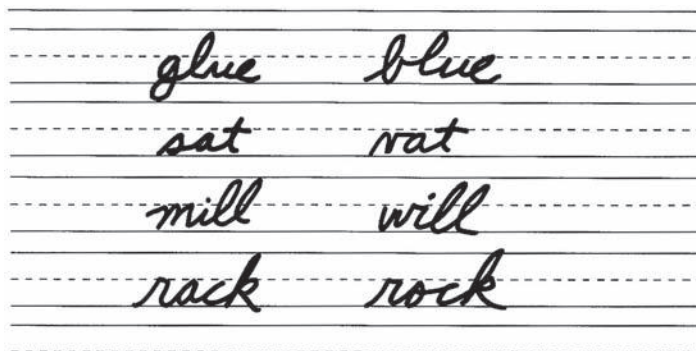 glue blue
sat vat
mill will
rack rock